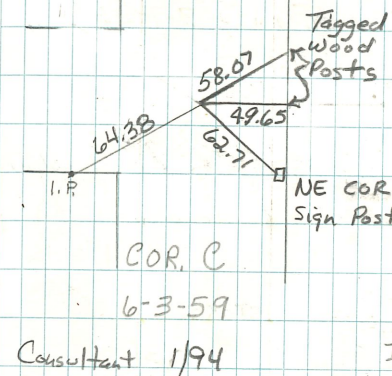 Tagged
Wood
Posts
58.07
49.65
64.38
62.71
I.P.
NE COR
Sign Post
COR. C
6-3-59
Consultant 1/94